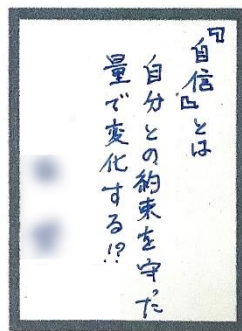 『自信』とは
自分との約束を守った
量で変化する!?